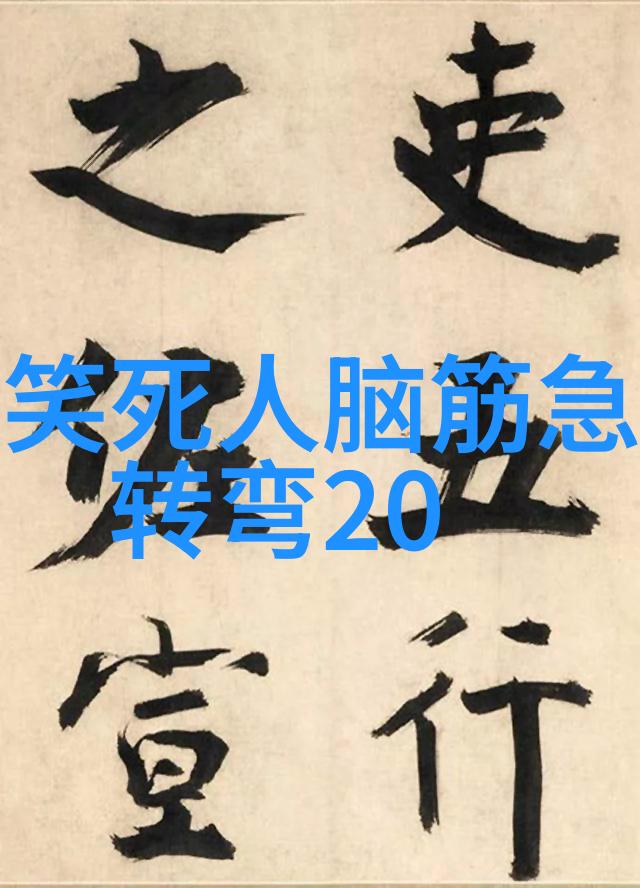 笑死人脑筋急
转弯20
吏行
之宣